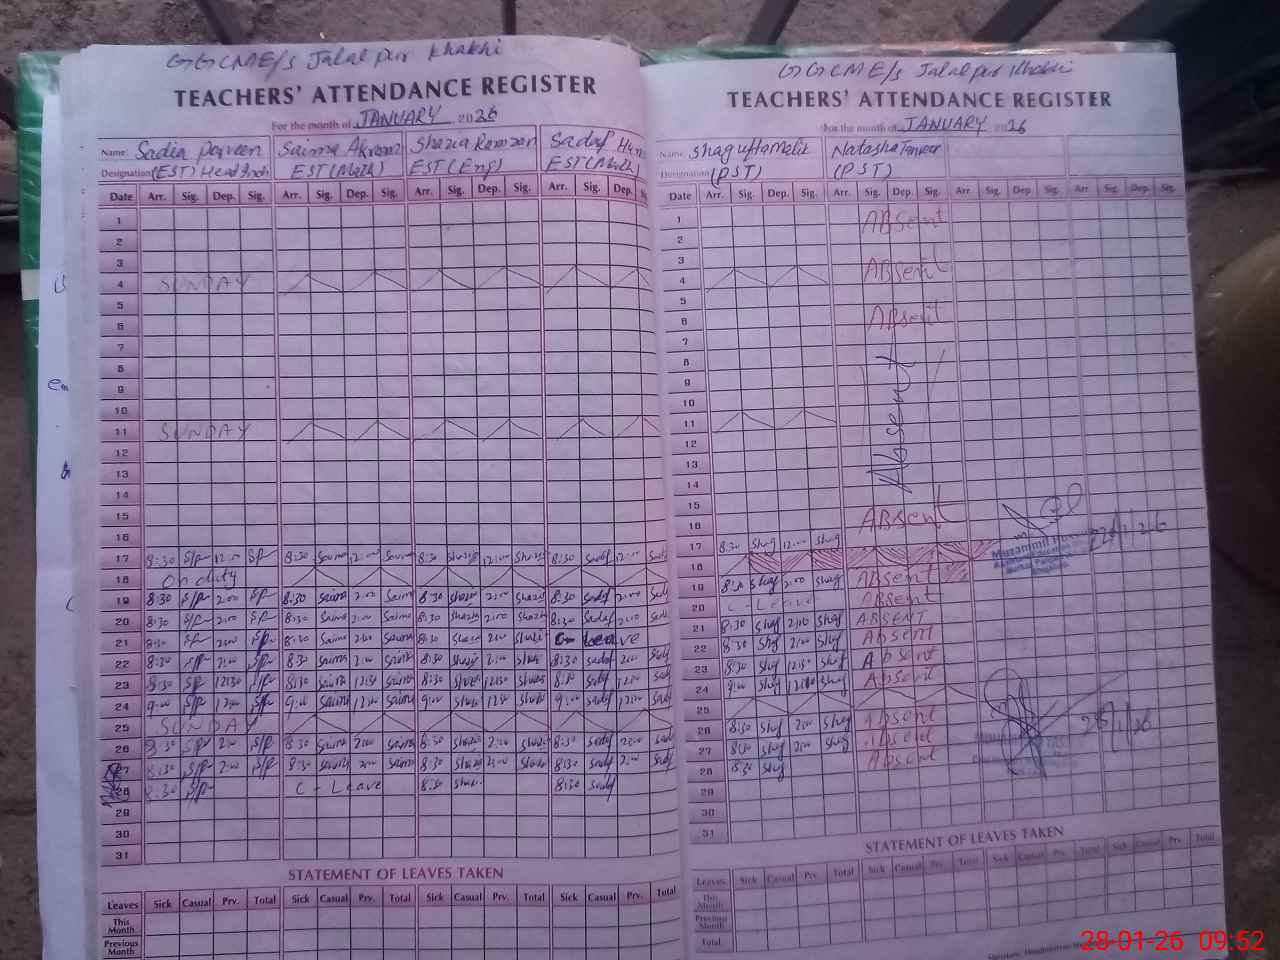 GGCME/s Jalalpur Khakhi
TEACHERS' ATTENDANCE REGISTER
For the month of JANUARY 2026
Name: Sadia Parveen Saima Akram Shazia Ramzan Sadaf
Designation (EST) Head EST (Math) EST (Eng) EST (Math)
Date Arr. Sig. Dep. Sig. Arr. Sig. Dep. Sig. Arr. Sig. Dep. Sig. Arr. Sig. Dep.
1
2
3
4 SUNDAY
5
6
7
8
9
10
11 SUNDAY
12
13
14
15
16
17 8:30 S/P 12:00 S/P 8:30 Saima 12:00 Saima 8:30 Shazia 12:00 Shazia 8:30 Sadaf 12:00 Sadaf
18 On duty
19 8:30 S/P 2:00 S/P 8:30 Saima 2:00 Saima 8:30 Shazia 2:00 Shazia 8:30 Sadaf 2:00 Sadaf
20 8:30 S/P 2:00 S/P 8:30 Saima 2:00 Saima 8:30 Shazia 2:00 Shazia 8:30 Sadaf 2:00 Sadaf
21 8:30 S/P 2:00 S/P 8:30 Saima 2:00 Saima 8:30 Shazia 2:00 Shazia C- Leave
22 8:30 S/P 2:00 S/P 8:30 Saima 2:00 Saima 8:30 Shazia 2:00 Shazia 8:30 Sadaf 2:00 Sadaf
23 8:30 S/P 12:30 S/P 8:30 Saima 12:30 Saima 8:30 Shazia 12:30 Shazia 8:30 Sadaf Sadaf
24 9:00 S/P S/P 9:00 Saima Saima 9:00 Shazia Shazia 9:00 Sadaf Sadaf
25 SUNDAY
26 8:30 S/P 2:00 S/P 8:30 Saima 2:00 Saima 8:30 Shazia 2:00 Shazia 8:30 Sadaf 2:00 Sadaf
27 8:30 S/P 2:00 S/P 8:30 Saima 2:00 Saima 8:30 Shazia 2:00 Shazia 8:30 Sadaf 2:00 Sadaf
28 8:30 S/P C - Leave 8:30 Shazia 8:30 Sadaf
29
30
31
STATEMENT OF LEAVES TAKEN
Leaves Sick Casual Prv. Total Sick Casual Prv. Total Sick Casual Prv. Total Sick Casual Prv. Total
This Month
Previous Month
GGCME/s Jalalpur Khakhi
TEACHERS' ATTENDANCE REGISTER
For the month of JANUARY 2026
Name: Shagufta Malik Natasha Tanveer
Designation (PST) (PST)
Date Arr. Sig. Dep. Sig. Arr. Sig. Dep. Sig. Arr Sig. Dep. Sig. Arr. Sig. Dep. Sig.
1 ABsent
2
3 ABsent
4
5
6 ABsent
7
8
9
10
11 Absent
12
13
14
15
16 ABsent
17 8:30 Shag 12:00 Shag
18
19 8:30 Shag 2:00 Shag ABsent
20 C-Leave ABsent
21 8:30 Shag 2:00 Shag ABSENT
22 8:30 Shag 2:00 Shag ABsent
23 8:30 Shag 12:30 Shag Absent
24 9:00 Shag Shag ABsent
25
26 8:30 Shag 2:00 Shag Absent
27 8:30 Shag 2:00 Shag Absent
28 8:30 Shag Absent
29
30
31
28/1/26
STATEMENT OF LEAVES TAKEN
Leaves Sick Casual Prv. Total Sick Casual Prv. Total Sick Casual Prv. Total Sick Casual Prv. Total
This Month
Previous Month
Total
28-01-26 09:52